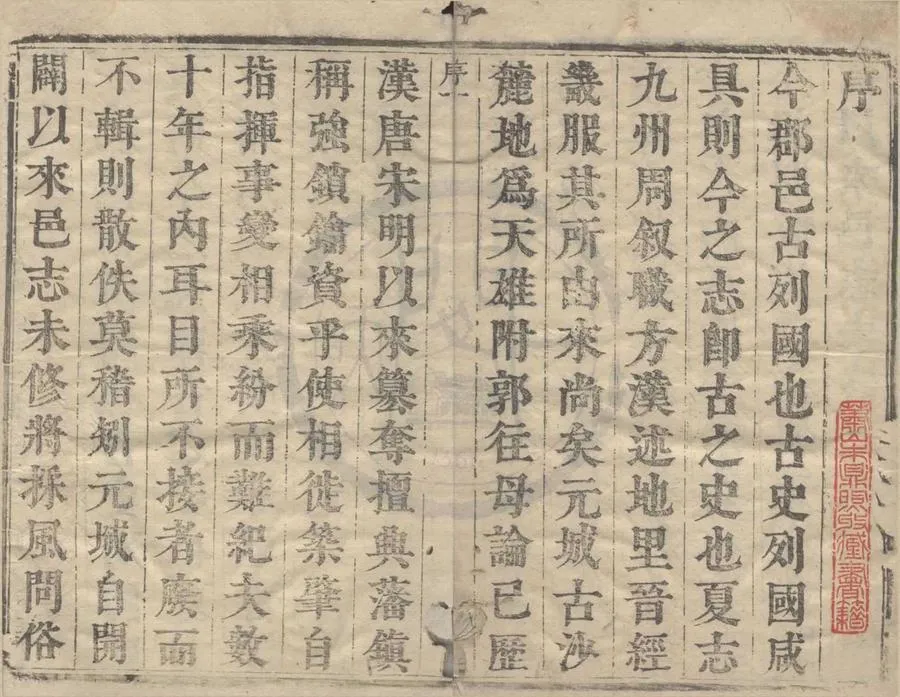 序
今郡邑古列國也古史列國咸
具則今之志卽古之史也夏志
九州周叙職方漢述地里晉經
畿服其所由來尚矣元城古沙
麓地爲天雄附郭往毋論已歷
序一
漢唐宋明以來篡奪擅典藩鎮
稱強鎖鑰資乎使相徙築肇自
指揮事變相乘紛而難紀夫數
十年之內耳目所不接者廢而
不輯則散佚莫稽矧元城自開
闢以來邑志未修將採風問俗
蕭山朱鼎煦收藏書籍